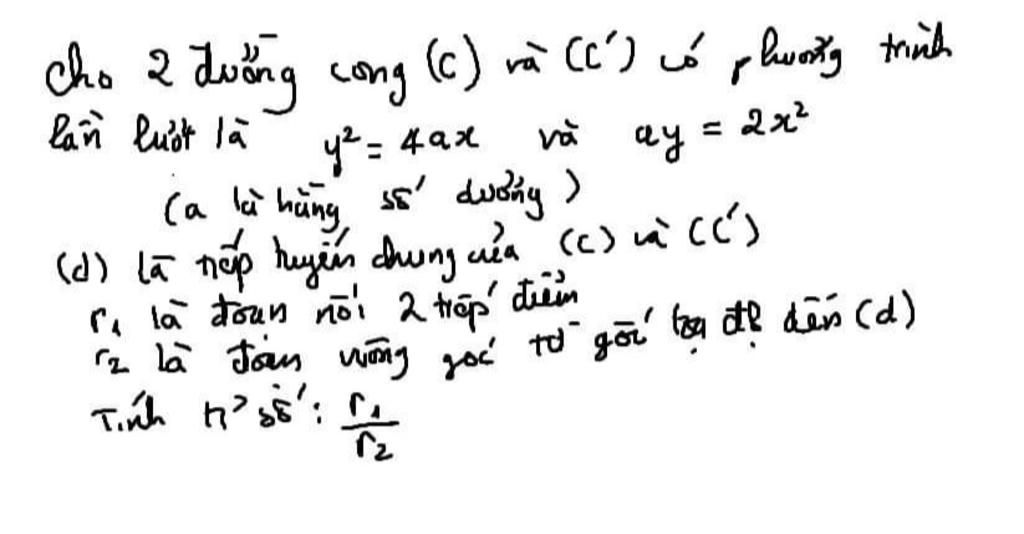 Cho 2 đường cong (C) và (C') có phương trình
lần lượt là y² = 4ax và ay = 2x²
(a là hằng số dương)
(d) là tiếp tuyến chung của (C) và (C')
r₁ là đoạn nối 2 tiếp điểm
r₂ là đoạn vuông góc từ gốc tọa độ đến (d)
Tính tỉ số: r₁/r₂